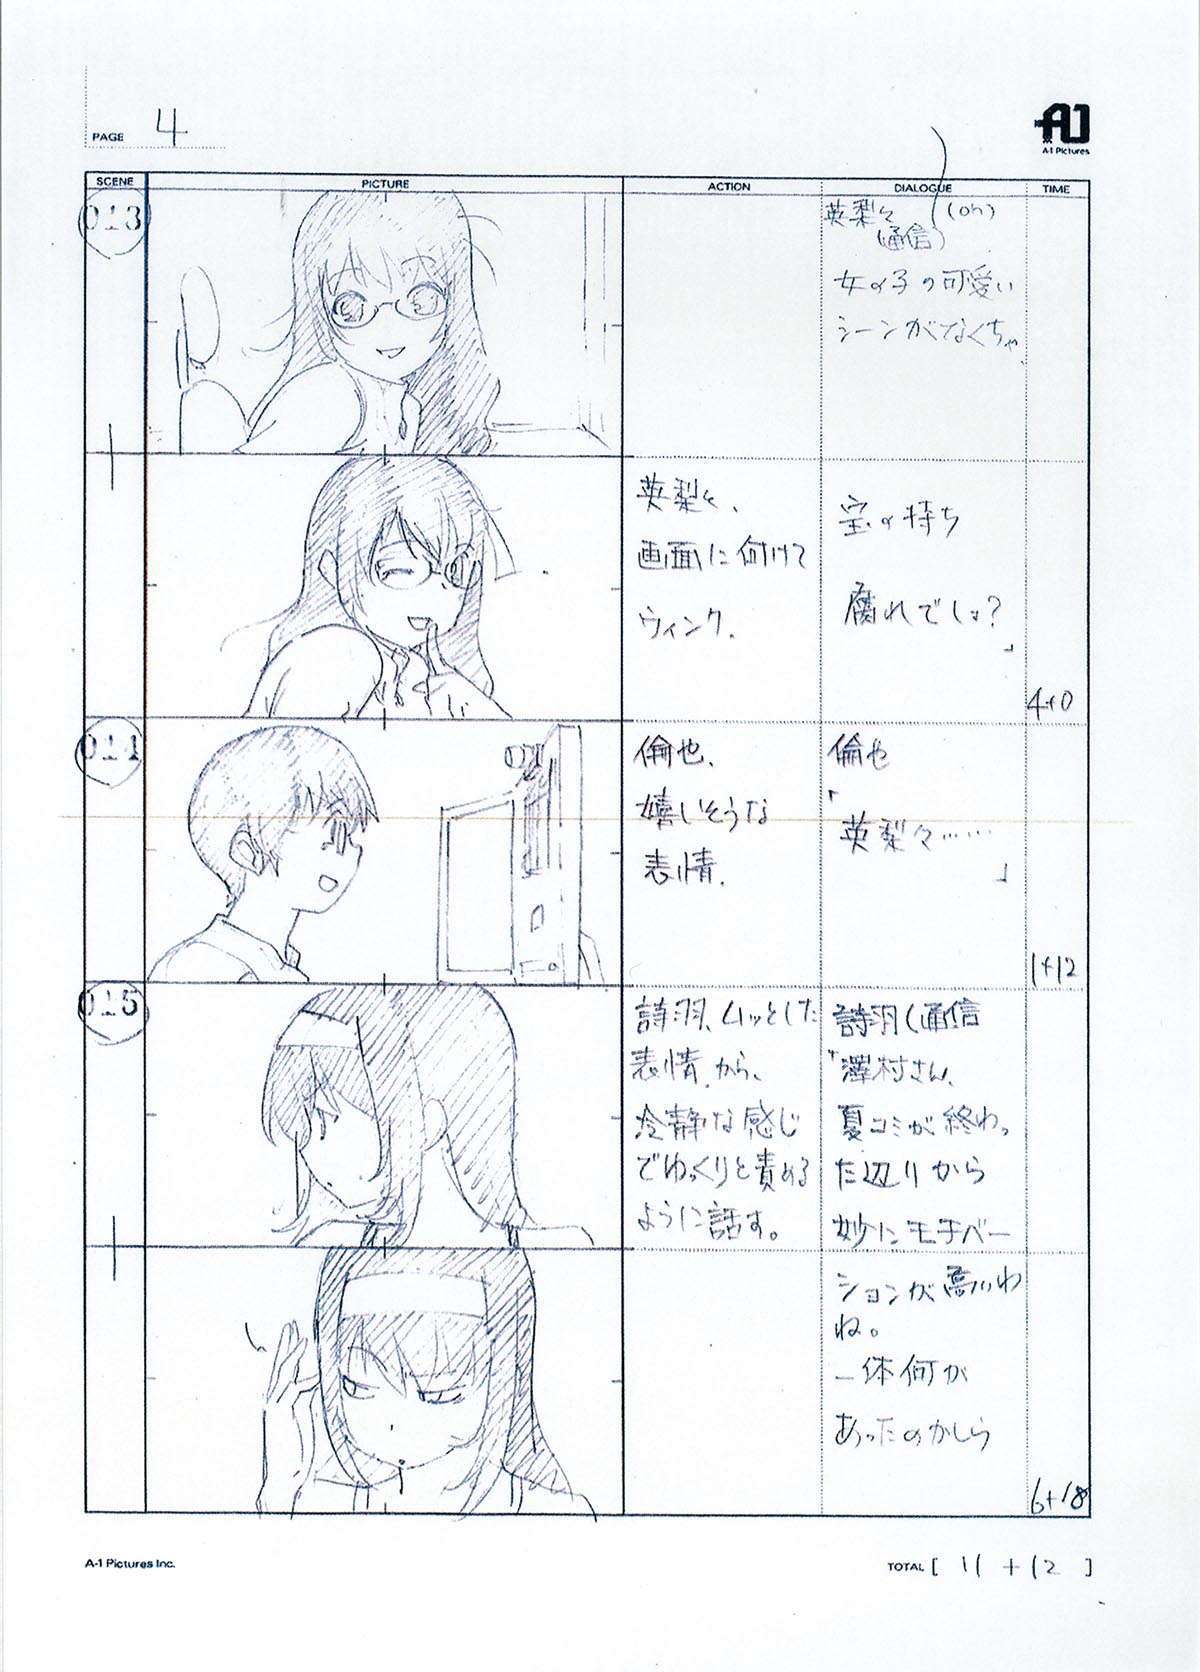 PAGE 4
A-1 Pictures
SCENE PICTURE ACTION DIALOGUE TIME
013
英梨々 (on)
(通信)
女の子の可愛い
シーンがなくちゃ、
英梨々、
画面に向けて
ウィンク.
宝の持ち
腐れでしょ?
」
4+0
014
倫也、
嬉しそうな
表情.
倫也
「
英梨々……
」
1+12
015
詩羽、ムッとした
表情.から、
冷静な感じ
でゆっくりと責める
ように話す。
詩羽(通信
「澤村さん、
夏コミが終わっ
た辺りから
妙にモチバー
ションが高いわ
ね。
一体何が
あったのかしら
6+18
A-1 Pictures Inc.
TOTAL [ 11 + 12 ]